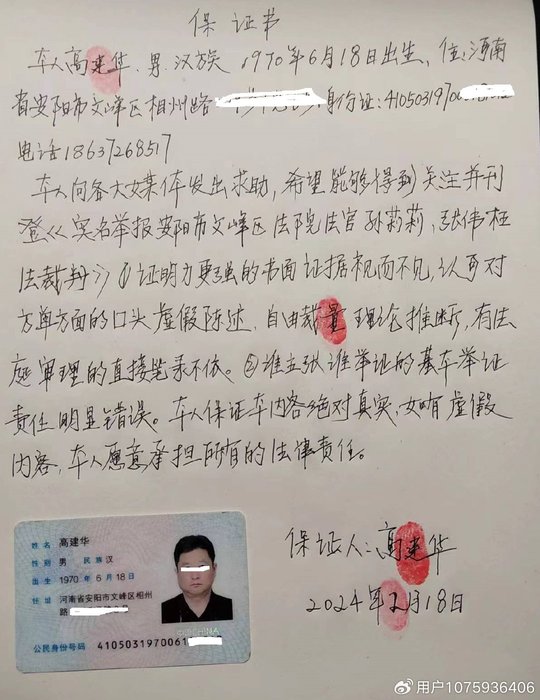 保证书
本人高建华、男、汉族 1970年6月18日出生、住:河南
省安阳市文峰区相州路 身份证:4105031970
电话18637268517
本人向各大媒体发出求助,希望能够得到关注并刊
登《实名举报安阳市文峰区法院法官孙莉莉、张伟枉
法裁判》①证明力更强的书面证据视而不见,认可对
方单方面的口头虚假陈述,自由裁量理论推断,有法
庭审理的直接笔录不依。②谁主张谁举证的基本举证
责任明显错误。本人保证本内容绝对真实,如有虚假
内容,本人愿意承担所有的法律责任。
保证人:高建华
2024年2月18日
姓名 高建华
性别 男 民族 汉
出生 1970 年 6 月 18 日
住址 河南省安阳市文峰区相州
路
CHINA
公民身份号码 4105031970061
用户1075936406